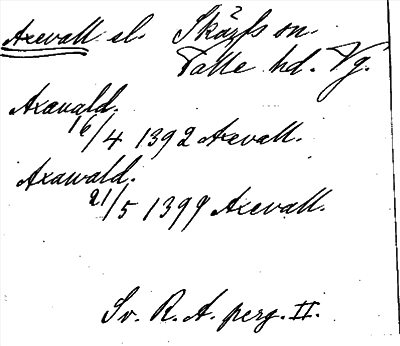 Axevall el. Skärfs sn.
Valle hd. Vg.
Axavald.
16/4 1392 Axevall.
Axawald.
21/5 1399 Axevall.
Sv. R. A. perg. II.